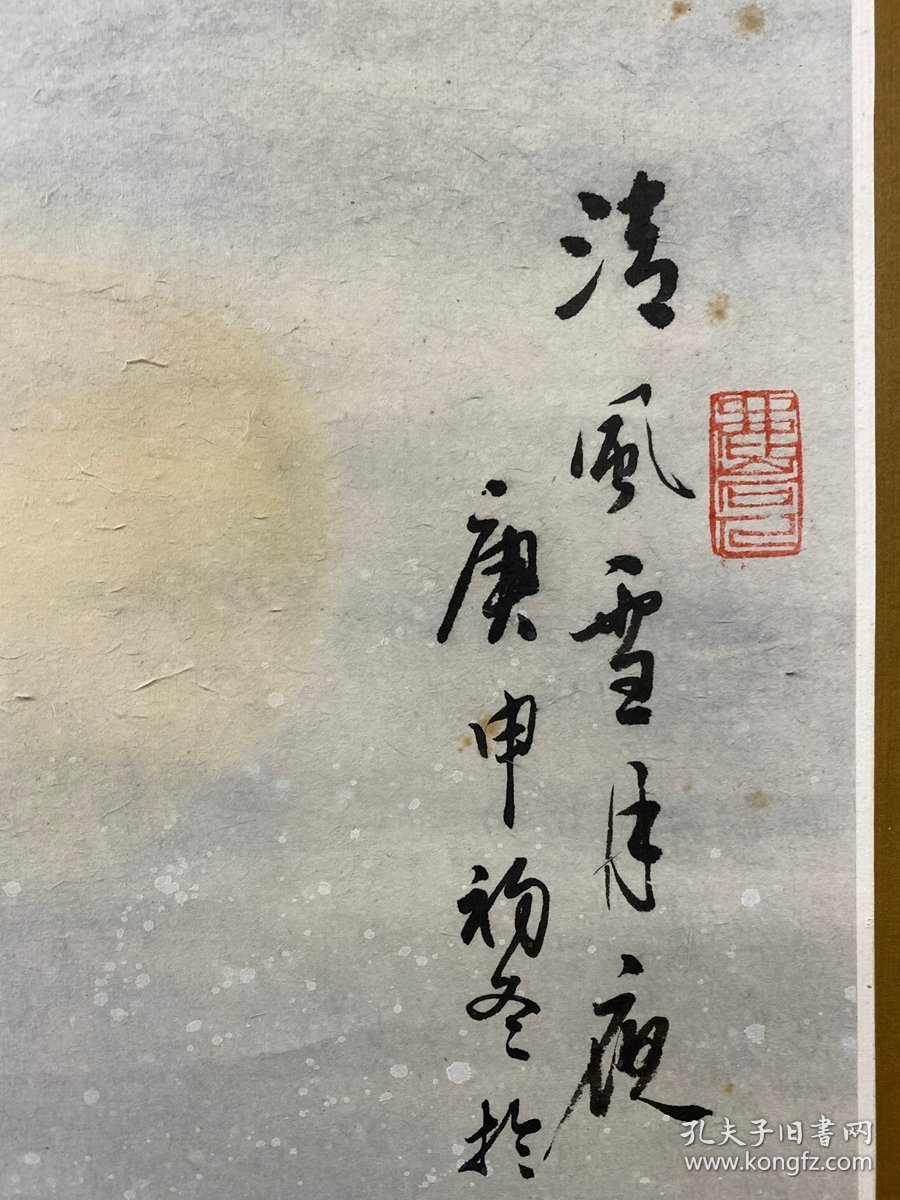 清風雪月夜
庚申初冬於
孔夫子旧書网
www.kongfz.com